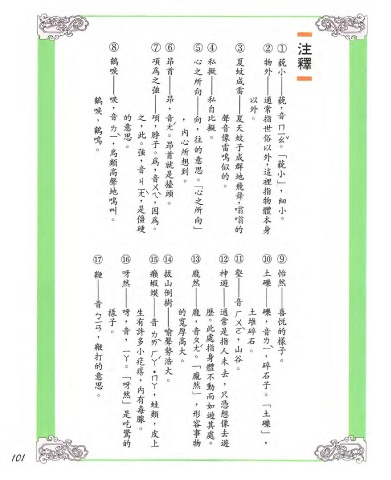 注釋
①藐小——藐,音ㄇㄧㄠˇ。「藐小」,細小。
②物外——通常指世俗以外,這裡指物體本身
以外。
③夏蚊成雷——夏天蚊子成群地飛著,嗡嗡的
聲音像雷鳴似的。
④私擬——私自比擬。
⑤心之所向——向,往的意思。「心之所向」
,內心所想到。
⑥昂首——昂,音ㄤˊ。昂首就是擡頭。
⑦項為之強——項,脖子。為,音ㄨㄟˋ,因為。
之,此。強,音ㄐㄧㄤˋ,是僵硬
的意思。
⑧鶴唳——唳,音ㄌㄧˋ,鳥類高聲地鳴叫。
鶴唳,鶴鳴。
⑨怡然——喜悅的樣子。
⑩土礫——礫,音ㄌㄧˋ,碎石子。「土礫」,
土堆碎石。
⑪壑——音ㄏㄨㄛˋ,山谷。
⑫神遊——通常是指人未去,只憑想像去遊
歷。此處指身體不動而如遊其處。
⑬龐然——龐,音ㄆㄤˊ。「龐然」,形容事物
的寬厚高大。
⑭拔山倒樹——喻聲勢浩大。
⑮癩蝦蟆——音ㄌㄞˋ ㄏㄚˊ・ㄇㄚ,蛙類,皮上
生有許多小疙瘩,內有毒腺。
⑯呀然——呀,音ㄧㄚ。「呀然」是吃驚的
樣子。
⑰鞭——音ㄅㄧㄢ,鞭打的意思。
101